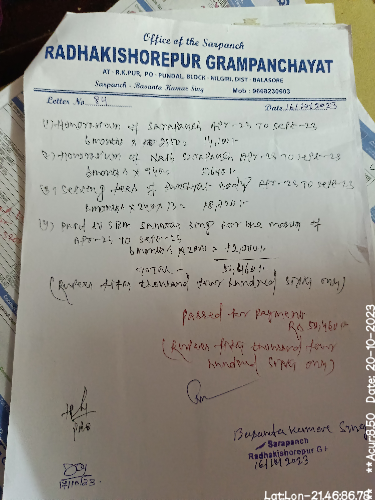 Office of the Sarpanch
RADHAKISHOREPUR GRAMPANCHAYAT
AT - R.K.PUR, PO - PUNDAL, BLOCK - NILGIRI, DIST - BALASORE
Sarpanch - Basanta Kumar Sing Mob : 9668230903
Letter No. 84 Date 16/10/2023
1) Honorarium of Sarapanch Apr-23 to Sept-23
6 months x
2) Honorarium of Naib Sarapanch Apr-23 to Sept-23
6 months x
3) Seeting fees of Apr-23 to Sept-23
6 months x
4) Paid to SBM for the month of
Apr-23 to Sept-23
6 months x 2000 = 12,000/-
Total -
(Rupees fifty thousand four hundred sixty only)
Passed for payment
Rs 50,460/-
(Rupees fifty thousand four
hundred sixty only)
PEO
Basanta Kumar Sing
Sarapanch
Radhakishorepur G.P
16/10/2023
**Acur:8.50 Date: 20-10-2023
LatLon-2146:86.78